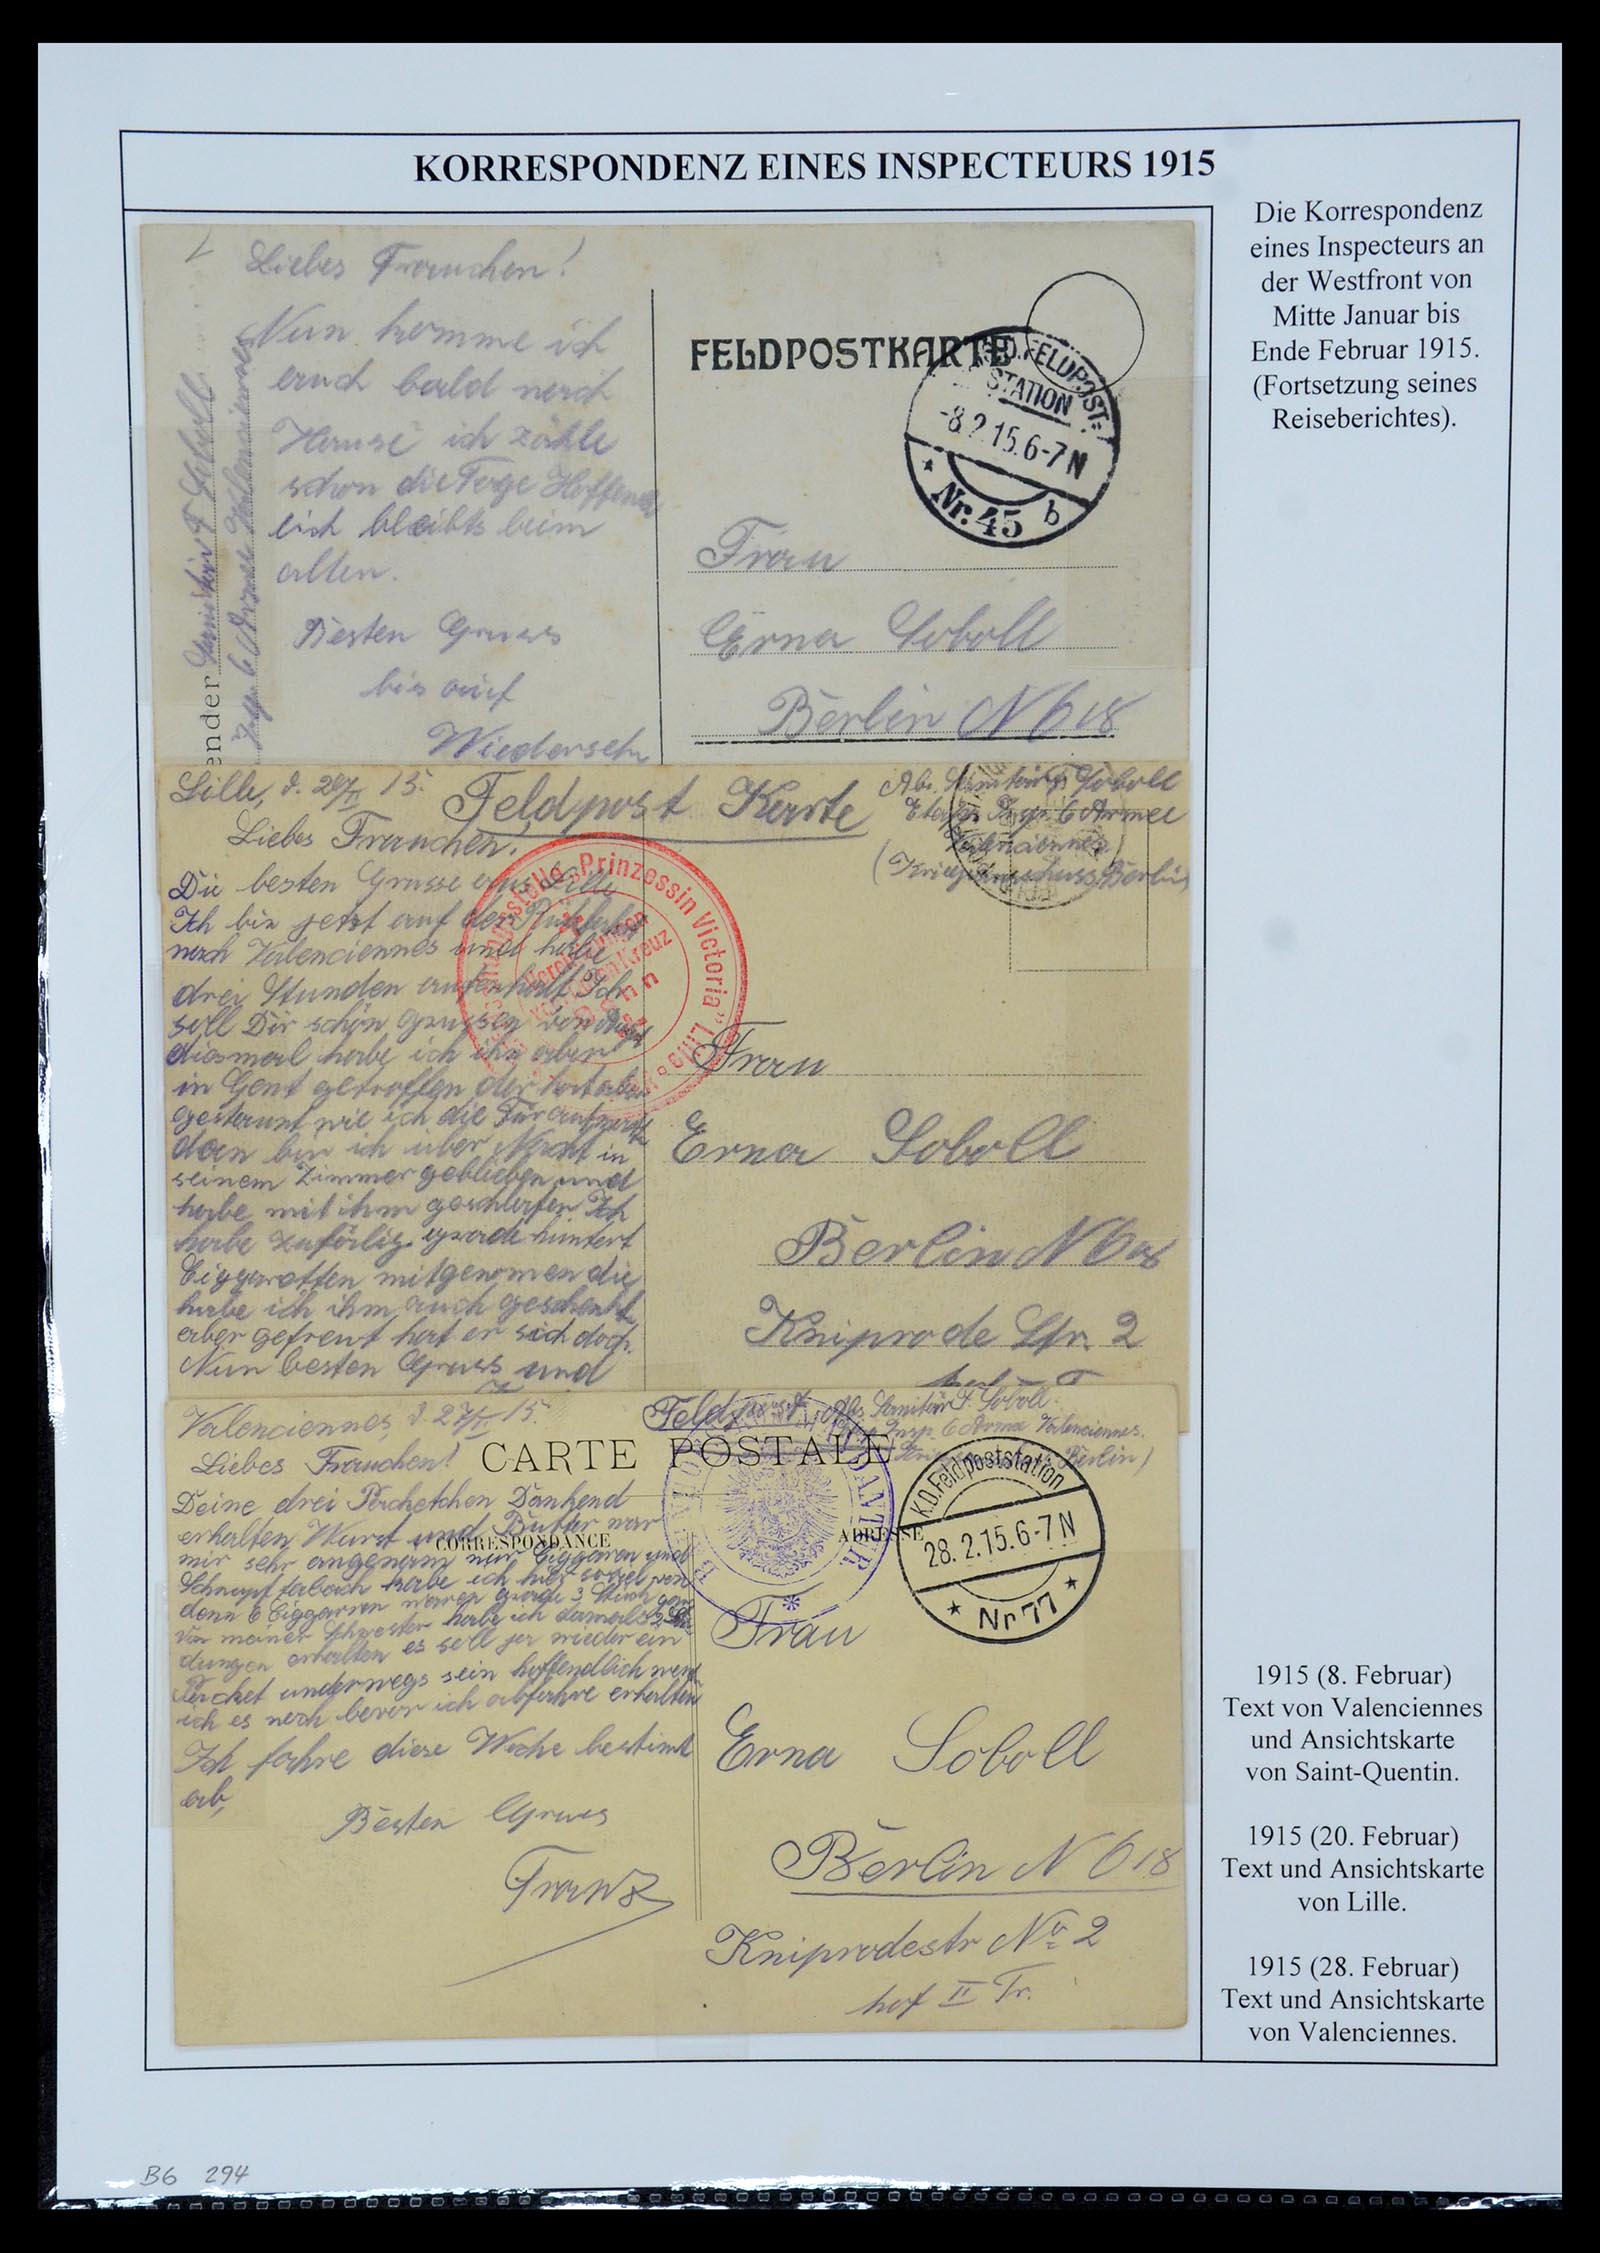 KORRESPONDENZ EINES INSPECTEURS 1915
Die Korrespondenz
eines Inspecteurs an
der Westfront von
Mitte Januar bis
Ende Februar 1915.
(Fortsetzung seines
Reiseberichtes).
Liebes Frauchen!
Nun komme ich
auch bald nach
Hause ich zähle
schon die Tage Hoffend
lich bleibts beim
alten.
Besten Gruss
bis auf
Wiedersehn
ender Sanitär F Soboll
6 Armee Valenciennes
FELDPOSTKARTE
K.D. FELDPOST-
STATION
-8.2.15.6-7N
* Nr. 45 b
Frau
Erna Soboll
Berlin N 618
Lille, d. 20/II 15.
Feldpost Karte
Abs. Sanitär F. Soboll
Etapp. Insp. 6 Armee
Valenciennes
(Kriegsausschuss, Berlin)
Liebes Frauchen!
Die besten Grüsse aus Lille
Ich bin jetzt auf der Rükfahrt
nach Valenciennes und habe
drei Stunden aufenhalt Ich
soll Dir schön grüssen von
diesmal habe ich ihn aber
in Gent getroffen der hat aber
gestaunt wie ich die Tür aufmacht
dan bin ich über Nacht in
seinem Zimmer geblieben und
habe mit ihm geschlafen Ich
habe zufällig grade hundert
Ciggaretten mitgenomen die
habe ich ihm auch geschenkt
aber gefreut hat er sich doch.
Nun besten Gruss und
"Prinzessin Victoria" Lille
vom Roten Kreuz
Bonn
Frau
Erna Soboll
Berlin N 618
Kniprode Str. 2
Valenciennes, d. 27/II 15.
Feldpost Abs. Sanitär F. Soboll.
Insp. 6 Arme Valenciennes.
Berlin)
Liebes Frauchen!
CARTE POSTALE
CORRESPONDANCE
ADRESSE
Deine drei Päcketchen Dankend
erhalten Wurst und Butter war
mir sehr angenem nur Ciggaren und
Schnupf tabach habe ich hier soviel von
denn 6 Ciggarren waren grade 3 Stück ganz
Von meiner Schwester habe ich damals 2 Sen
dungen erhalten es soll ja wieder ein
Päcket underwegs sein hoffendlich werd
ich es noch bevor ich abfahre erhalten
Ich fahre diese Woche bestimt
ab,
Besten Gruss
Franz
K.D. Feldpoststation
28.2.15.6-7N
* Nr 77 *
Frau
Erna Soboll
Berlin N 618
Kniprodestr No 2
hof II Tr.
1915 (8. Februar)
Text von Valenciennes
und Ansichtskarte
von Saint-Quentin.
1915 (20. Februar)
Text und Ansichtskarte
von Lille.
1915 (28. Februar)
Text und Ansichtskarte
von Valenciennes.
B6 294